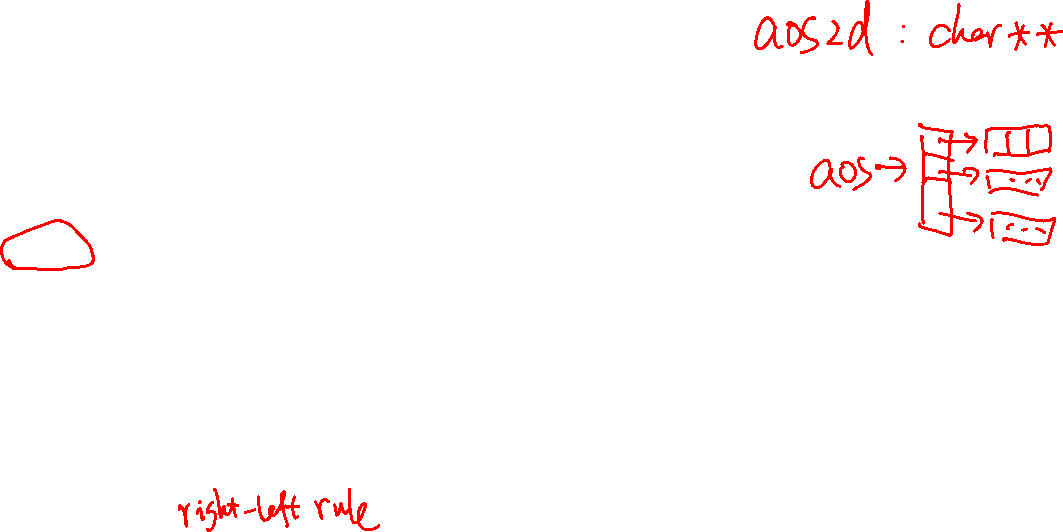 aos2d : char**
aos→
right-left rule